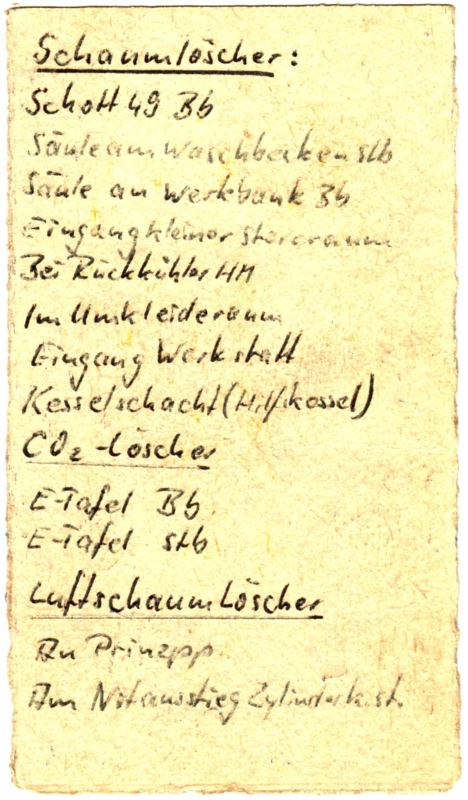 Schaumlöscher:
Schott 49 Bb
Säule am Waschbecken stb
Säule an Werkbank Bb
Eingang kleiner Storeraum
Bei Rückkühler HM
Im Umkleideraum
Eingang Werkstatt
Kesselschacht (Hilfskessel)
CO₂-Löscher
E-Tafel Bb
E-Tafel stb
Luftschaumlöscher
An
Am Notausstieg